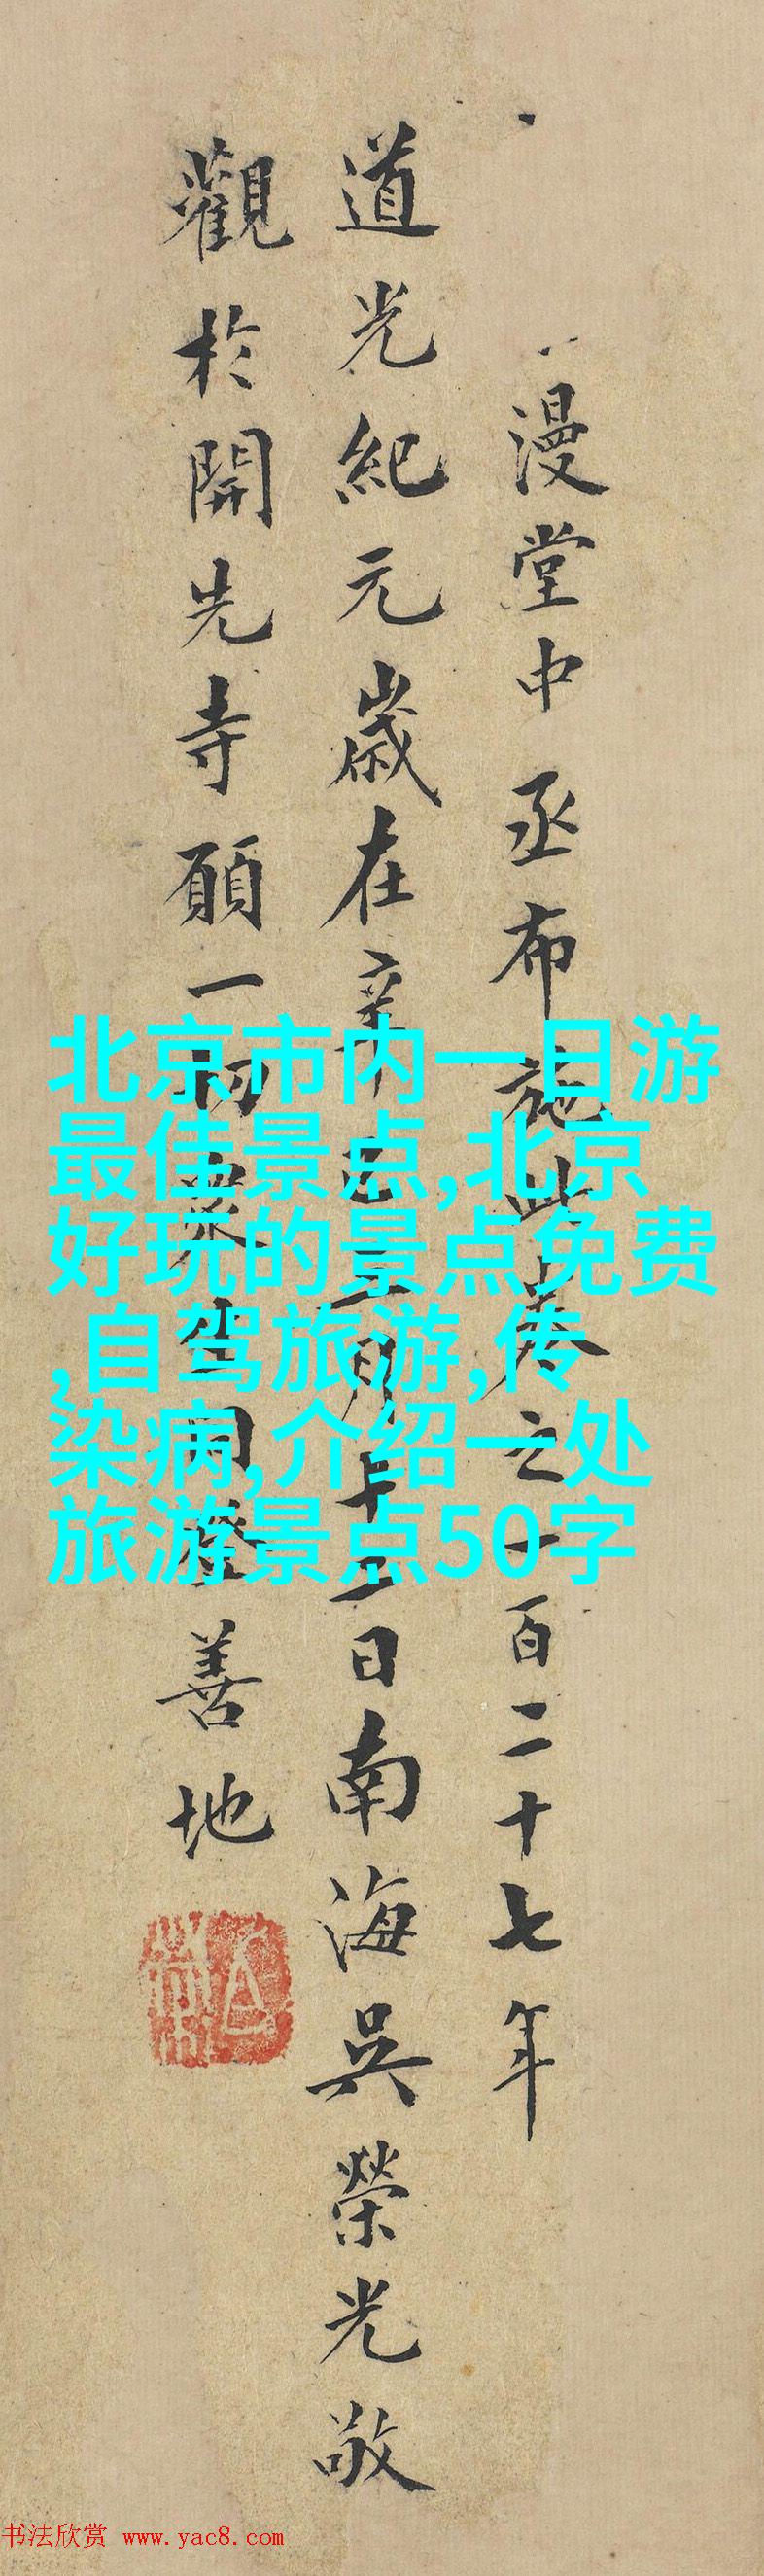 漫堂中丞布施此卷之一百二十七年
道光紀元歲在辛巳三月十五日南海吳榮光敬
觀於開先寺願一切眾生同登善地
北京市内一日游
最佳景点,北京
好玩的景点免费
,自驾旅游,传
染病,介绍一处
旅游景点50字
书法欣赏 www.yac8.com